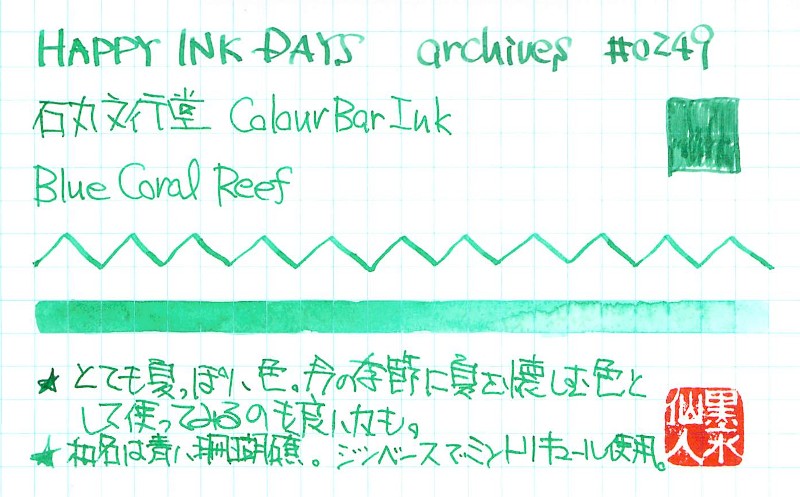 HAPPY INK DAYS archives #0249
石丸文行堂 Colour Bar Ink
Blue Coral Reef
★とても夏っぽい色。今の季節に夏を懐しむ色と
して使ってみるのも良いかも。
★和名は青い珊瑚礁。ジンベースでミントリキュール使用。
墨水
仙人